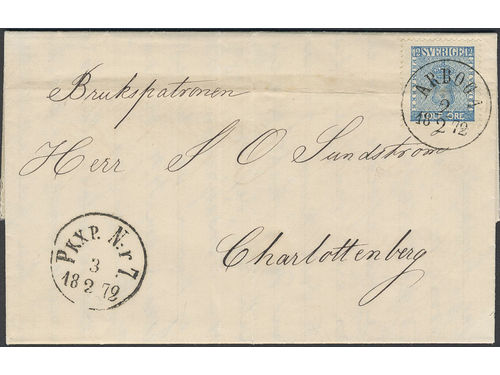 12 SVERIGE 12
TOLF ÖRE
ARBOGA
2
18 2 72
Brukspatronen
Herr S O Sundström
Charlottenberg
PKXP. N:r 7
3
18 2 72